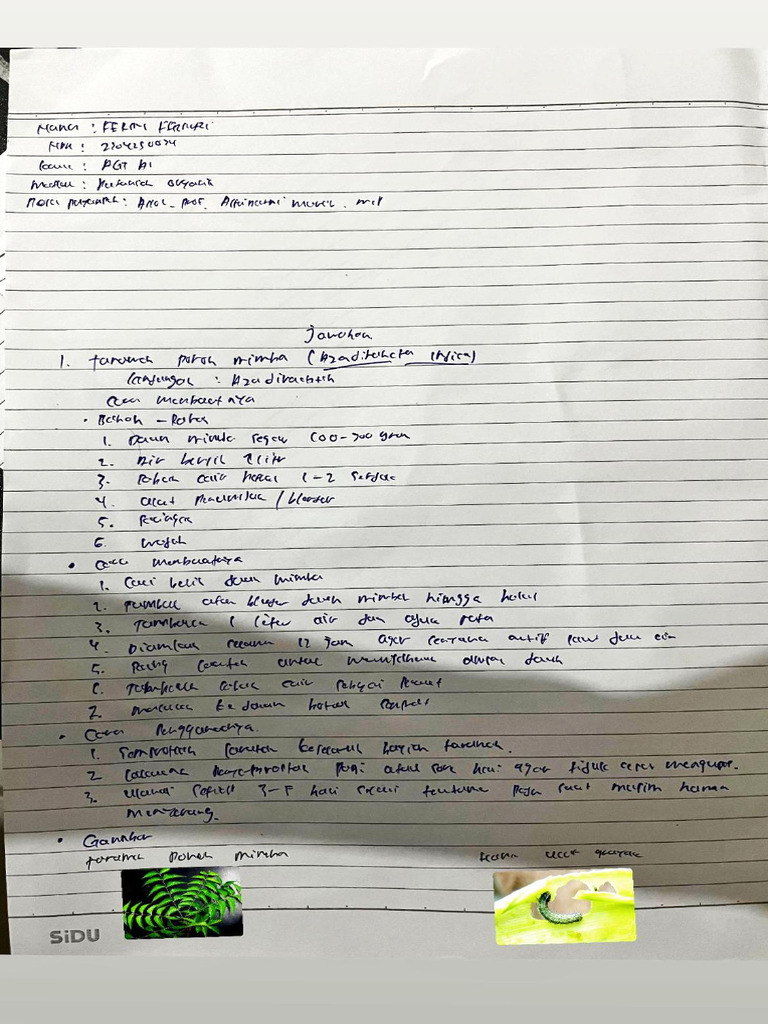 Nama : FERDI FERNARI
NPM : 2204290074
: AGT A1
: Pertanian Organik
Dosen : Assoc. Prof.
Jawaban
1. tanaman pohon mimba (Azadirachta indica)
kandungan : Azadirachtin
Cara membuatnya
• Bahan - Bahan
1. Daun mimba segar 500-700 gram
2. Air bersih 1 liter
3. Sabun cair 1-2 sendok
4. alat penumbuk / blender
5. Saringan
6. wadah
• Cara membuatnya
1. Cuci bersih daun mimba
2. Tumbuk atau blender daun mimba hingga halus
3. Tambahkan 1 liter air dan aduk rata
4. Diamkan selama 12 jam agar senyawa aktif larut dalam air
5. Saring larutan untuk memisahkan ampas daun
6. Tambahkan sabun cair sebagai perekat
7. masukan ke dalam botol semprot
• Cara Penggunaannya
1. Semprotkan larutan keseluruh bagian tanaman.
2. Lakukan penyemprotan pagi atau sore hari agar tidak cepat menguap.
3. Ulangi setiap 3-5 hari sekali terutama pada saat musim hama
menyerang.
• Gambar
tanaman Pohon mimba
hama ulat grayak
SiDU